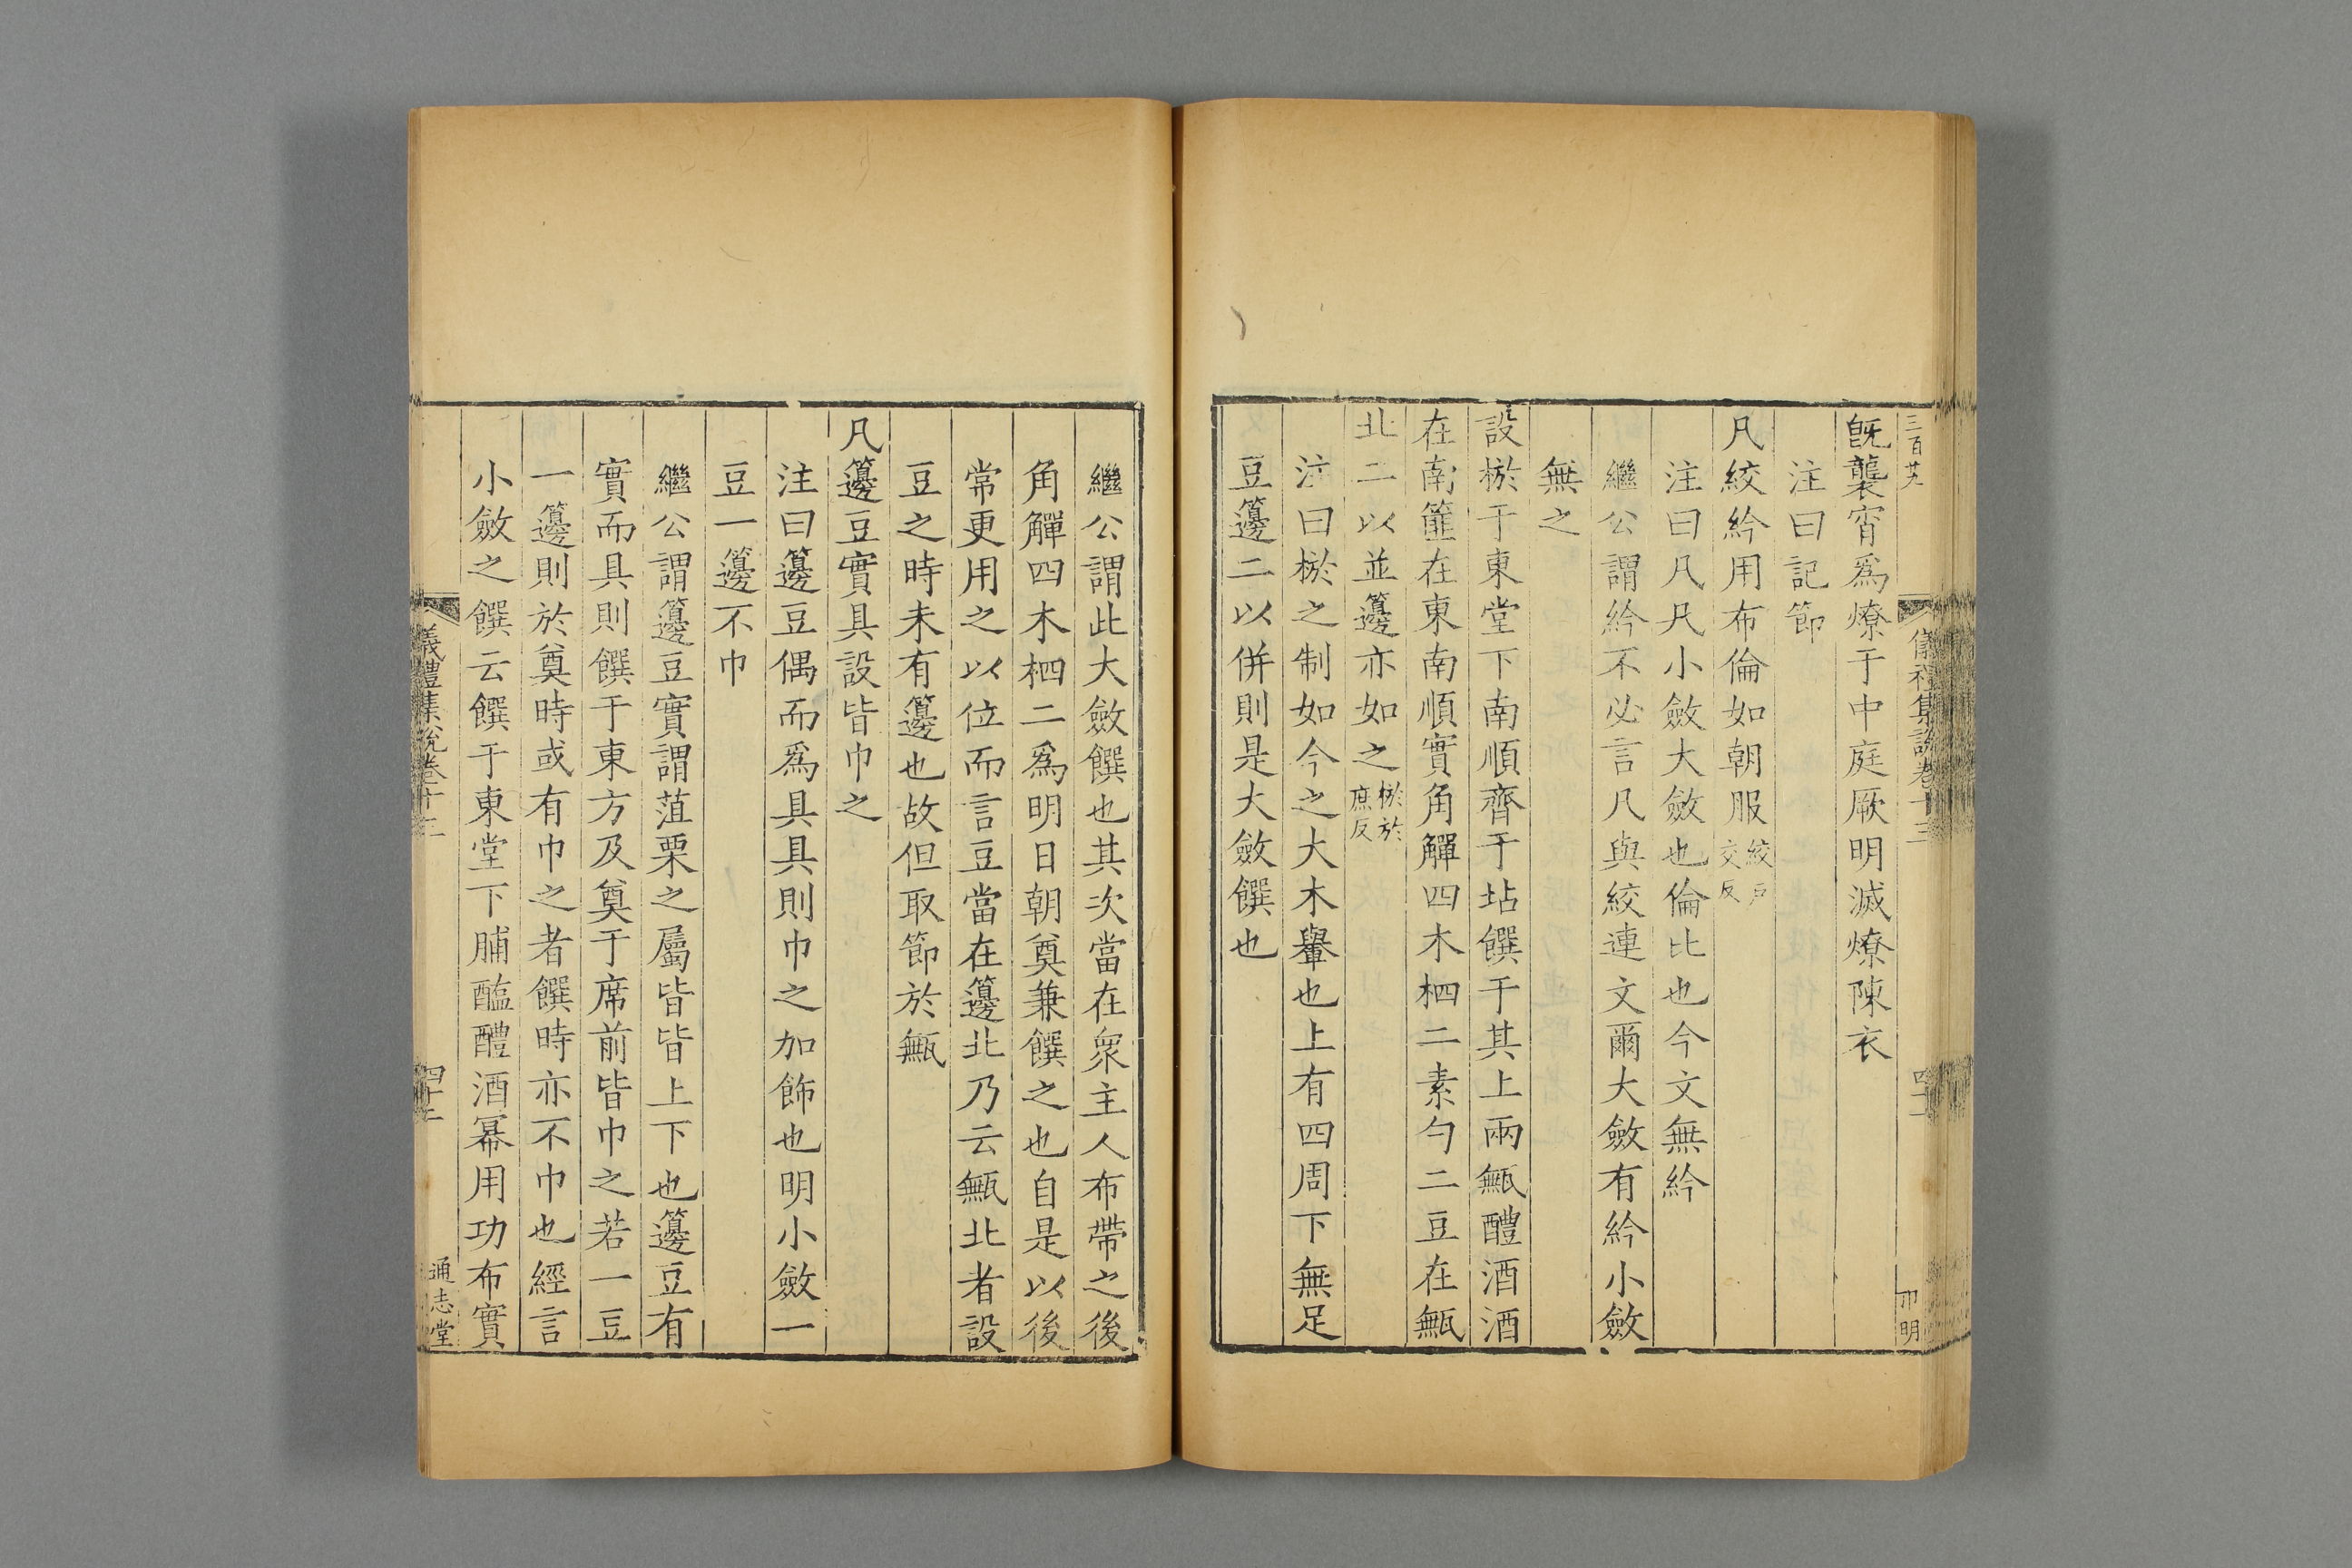 三百廿六
儀禮集說卷十三
四十一
卩明
旣襲宵爲燎于中庭厥明滅燎陳衣
注曰記節
凡絞紟用布倫如朝服絞戶交反
注曰凡凡小斂大斂也倫比也今文無紟
繼公謂紟不必言凡與絞連文爾大斂有紟小斂
無之
設棜于東堂下南順齊于坫饌于其上兩甒醴酒酒
在南篚在東南順實角觶四木柶二素勺二豆在甒
北二以並籩亦如之棜於庶反
注曰棜之制如今之大木轝也上有四周下無足
豆籩二以併則是大斂饌也
繼公謂此大斂饌也其次當在衆主人布帶之後
角觶四木柶二爲明日朝奠兼饌之也自是以後
常更用之以位而言豆當在籩北乃云甒北者設
豆之時未有籩也故但取節於甒
凡籩豆實具設皆巾之
注曰籩豆偶而爲具具則巾之加飾也明小斂一
豆一籩不巾
繼公謂籩豆實謂菹栗之屬皆皆上下也籩豆有
實而具則饌于東方及奠于席前皆巾之若一豆
一籩則於奠時或有巾之者饌時亦不巾也經言
小斂之饌云饌于東堂下脯醢醴酒冪用功布實
儀禮集說卷十三
四十二
通志堂